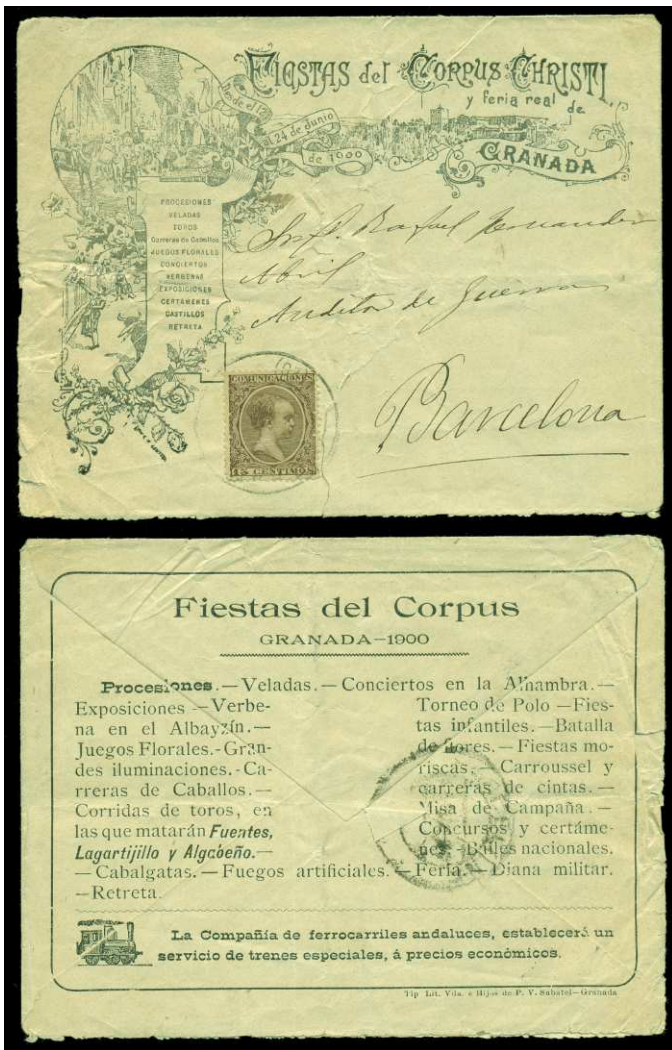 FIESTAS del CORPUS CHRISTI
y feria real de
GRANADA
Desde el 12
al 24 de Junio
de 1900
PROCESIONES
VELADAS
TOROS
Carreras de Caballos
JUEGOS FLORALES
CONCIERTOS
VERBENAS
EXPOSICIONES
CERTÁMENES
CASTILLOS
RETRETA
Rafael
Abril
Auditor de Guerra
Barcelona
COMUNICACIONES
15 CENTIMOS
Fiestas del Corpus
GRANADA—1900
Procesiones.—Veladas.—Conciertos en la Alhambra.—
Exposiciones—Verbe-
na en el Albayzín.—
Juegos Florales.-Gran-
des iluminaciones.-Ca-
rreras de Caballos.—
Corridas de toros, en
las que matarán Fuentes,
Lagartijillo y Algabeño.—
Torneo de Polo—Fies-
tas infantiles.—Batalla
de flores.—Fiestas mo-
riscas.—Carroussel y
carreras de cintas.—
Misa de Campaña.—
Concursos y certáme-
nes.-Bailes nacionales.
—Cabalgatas.—Fuegos artificiales.—Feria.—Diana militar.
—Retreta.
La Compañía de ferrocarriles andaluces, establecerá un
servicio de trenes especiales, á precios económicos.
Tip. Lit. Vda. e Hijos de P. V. Sabatel—Granada